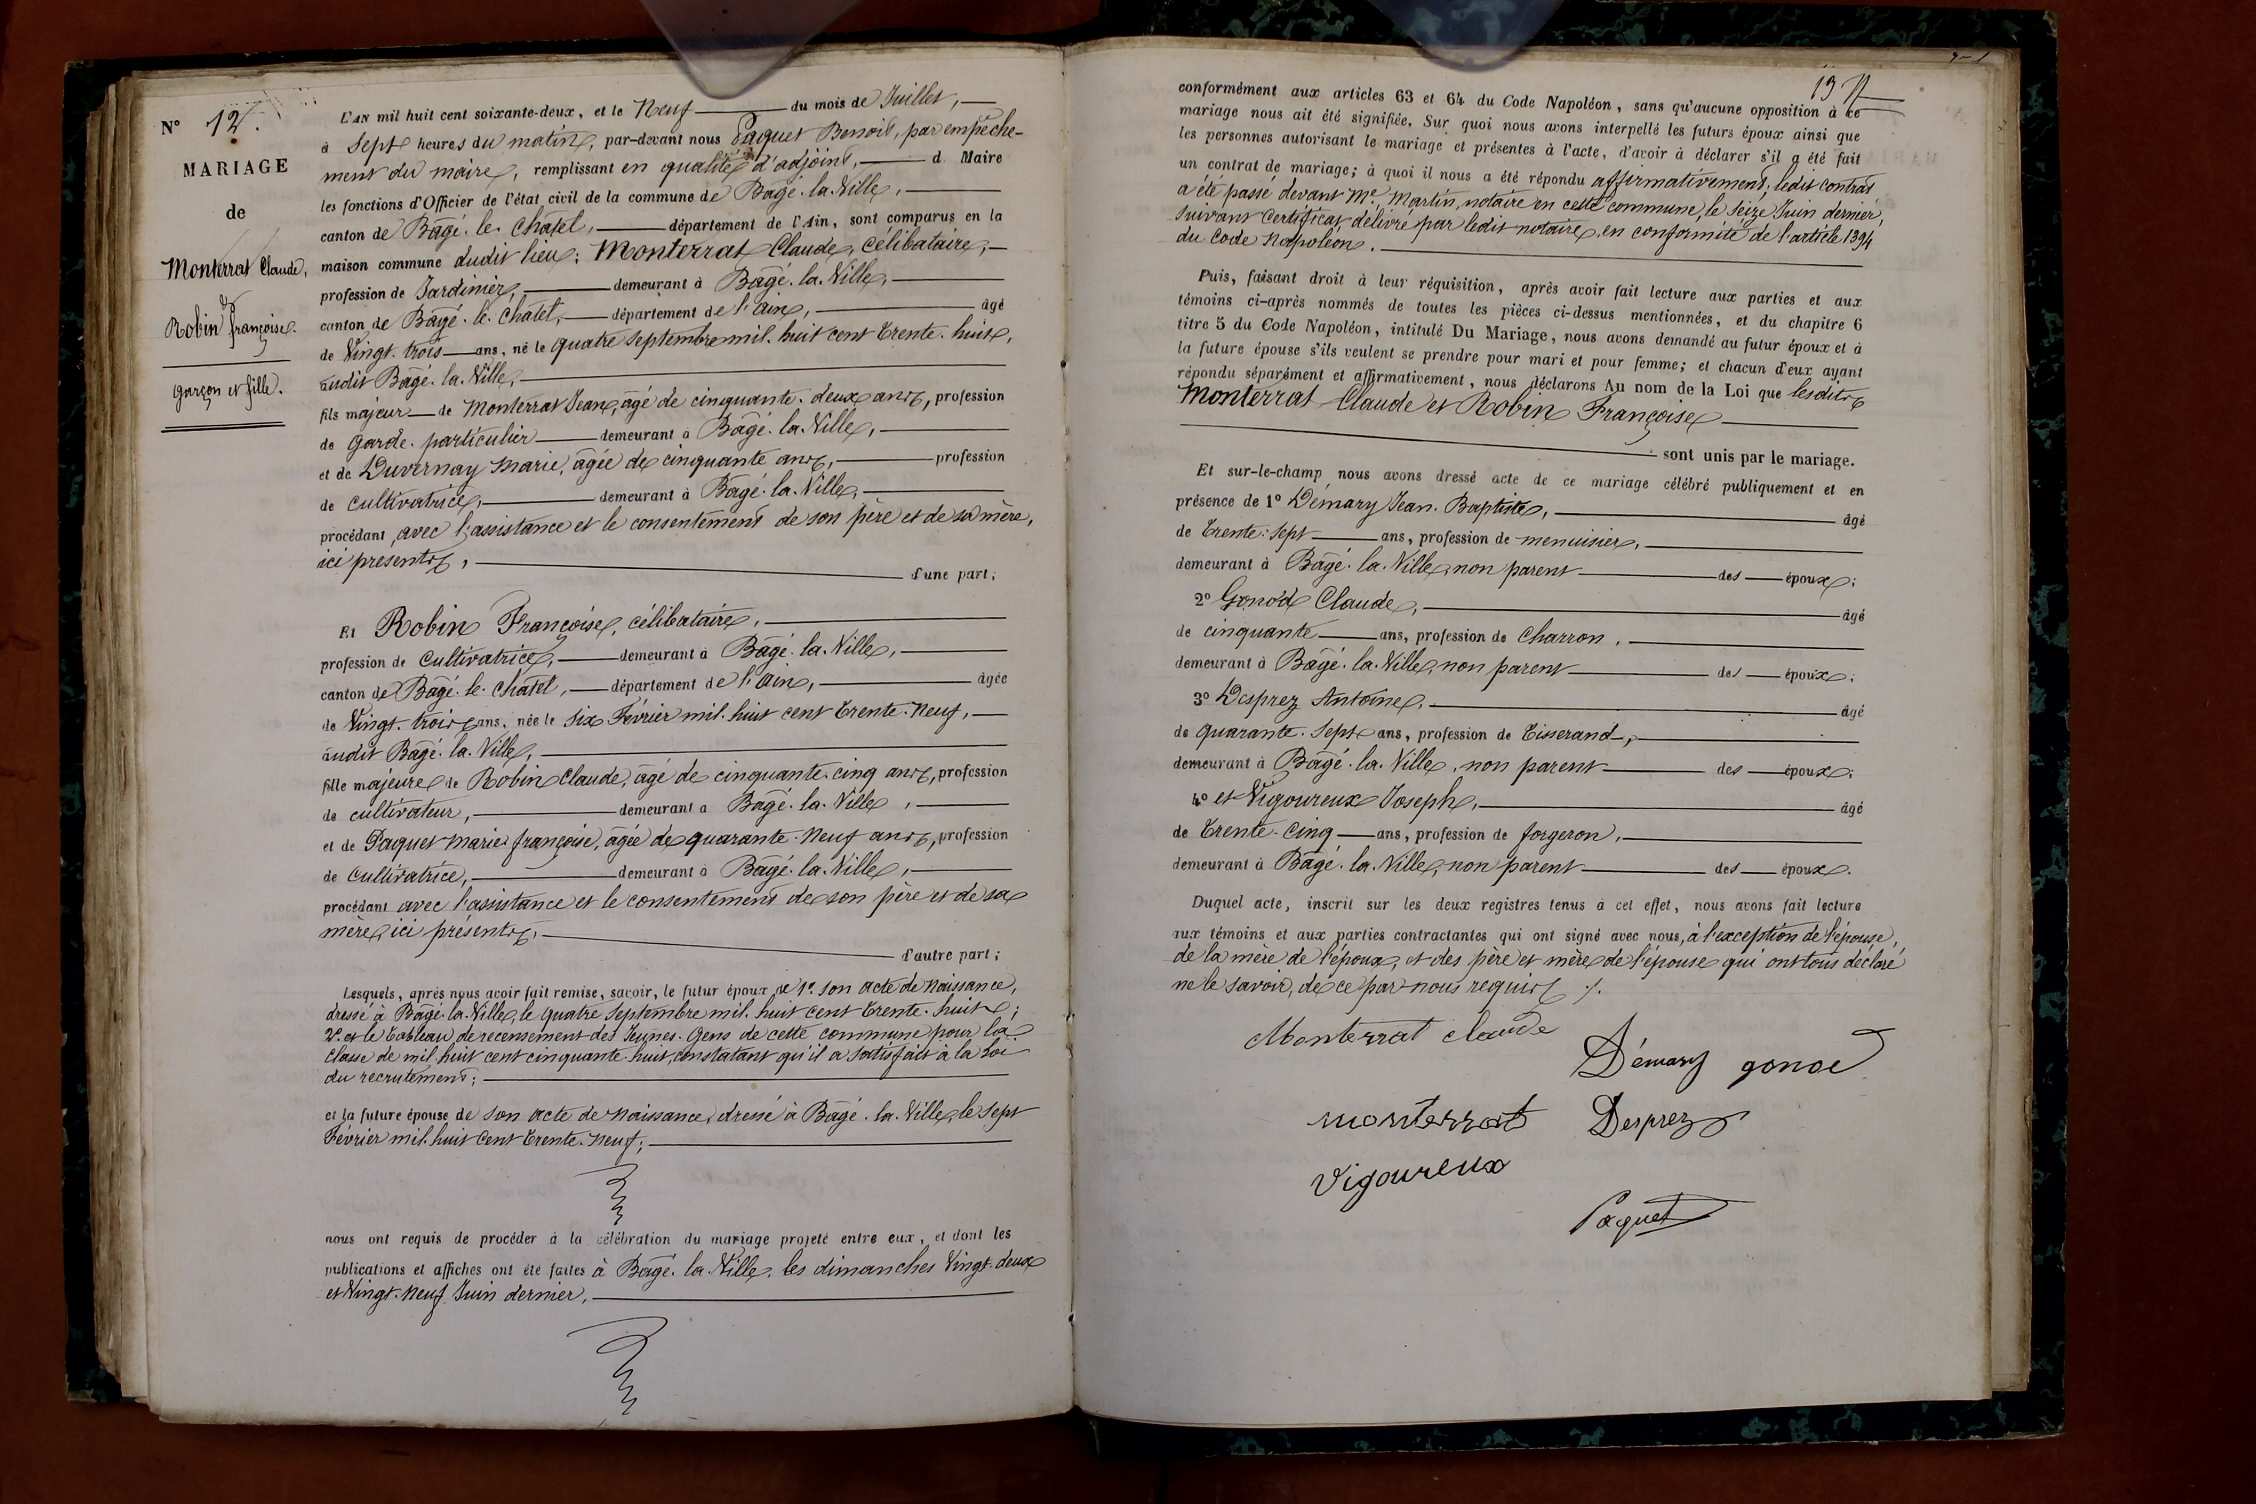 N° 12.
MARIAGE
de
Monterrat Claude,
&
Robin françoise.
garçon et fille.
L'AN mil huit cent soixante-deux, et le Neuf du mois de Juillet,
à Sept heures du matin, par-devant nous Paquet Benoit, par empêche-
ment du maire, remplissant en qualité d'adjoint, d Maire
les fonctions d'Officier de l'état civil de la commune de Bâgé-la-Ville,
canton de Bâgé-le-Châtel, département de l'Ain, sont comparus en la
maison commune dudit lieu: Monterrat Claude, célibataire,
profession de Jardinier, demeurant à Bâgé-la-Ville,
canton de Bâgé-le-Châtel, département de l'ain, âgé
de Vingt-trois ans, né le quatre Septembre mil-huit cent trente-huit,
audit Bâgé-la-Ville,
fils majeur de Monterrat Jean, âgé de cinquante-deux ans, profession
de garde-particulier demeurant à Bâgé-la-Ville,
et de Duvernay Marie, âgée de cinquante ans, profession
de cultivatrice, demeurant à Bâgé-la-Ville,
procédant avec l'assistance et le consentement de son père et de sa mère,
ici présents, d'une part;
Et Robin Françoise, célibataire,
profession de cultivatrice, demeurant à Bâgé-la-Ville,
canton de Bâgé-le-Châtel, département de l'ain, âgée
de Vingt-trois ans, née le six Février mil-huit cent trente-neuf,
audit Bâgé-la-Ville,
fille majeure de Robin Claude, âgé de cinquante-cinq ans, profession
de cultivateur, demeurant à Bâgé-la-Ville,
et de Paquet Marie françoise, âgée de quarante-neuf ans, profession
de cultivatrice, demeurant à Bâgé-la-Ville,
procédant avec l'assistance et le consentement de son père et de sa
mère, ici présents, d'autre part;
Lesquels, après nous avoir fait remise, savoir, le futur époux, de 1° son acte de Naissance,
dressé à Bâgé-la-Ville, le quatre Septembre mil-huit cent trente-huit;
2° et le tableau de recensement des Jeunes-Gens de cette commune pour la
classe de mil-huit cent cinquante-huit, constatant qu'il a satisfait à la Loi
du recrutement;
et la future épouse de son acte de Naissance, dressé à Bâgé-la-Ville, le sept
Février mil-huit cent trente-neuf;
nous ont requis de procéder à la célébration du mariage projeté entre eux, et dont les
publications et affiches ont été faites à Bâgé-la-Ville, les dimanches Vingt-deux
et Vingt-neuf Juin dernier,
13
conformément aux articles 63 et 64 du Code Napoléon, sans qu'aucune opposition à ce
mariage nous ait été signifiée. Sur quoi nous avons interpellé les futurs époux ainsi que
les personnes autorisant le mariage et présentes à l'acte, d'avoir à déclarer s'il a été fait
un contrat de mariage; à quoi il nous a été répondu affirmativement, ledit contrat
a été passé devant Me. Martin, notaire en cette commune, le seize Juin dernier,
suivant Certificat délivré par ledit notaire, en conformité de l'article 1394
du Code Napoléon.
Puis, faisant droit à leur réquisition, après avoir fait lecture aux parties et aux
témoins ci-après nommés de toutes les pièces ci-dessus mentionnées, et du chapitre 6
titre 5 du Code Napoléon, intitulé Du Mariage, nous avons demandé au futur époux et à
la future épouse s'ils veulent se prendre pour mari et pour femme; et chacun d'eux ayant
répondu séparément et affirmativement, nous déclarons Au nom de la Loi que lesdits
Monterrat Claude et Robin Françoise
sont unis par le mariage.
Et sur-le-champ nous avons dressé acte de ce mariage célébré publiquement et en
présence de 1° Démary Jean-Baptiste, âgé
de trente-sept ans, profession de menuisier,
demeurant à Bâgé-la-Ville, non parent des époux;
2° Gonod Claude, âgé
de cinquante ans, profession de Charron,
demeurant à Bâgé-la-Ville, non parent des époux;
3° Desprez Antoine, âgé
de quarante-sept ans, profession de tisserand,
demeurant à Bâgé-la-Ville, non parent des époux;
4° et Vigoureux Joseph, âgé
de trente-cinq ans, profession de forgeron,
demeurant à Bâgé-la-Ville, non parent des époux.
Duquel acte, inscrit sur les deux registres tenus à cet effet, nous avons fait lecture
aux témoins et aux parties contractantes qui ont signé avec nous, à l'exception de l'épouse,
de la mère de l'époux, et des père et mère de l'épouse qui ont tous déclaré
ne le savoir, de ce par nous requis ./.
Monterrat claude
Démary gonod
monterrat Desprez
Vigoureux
Paquet